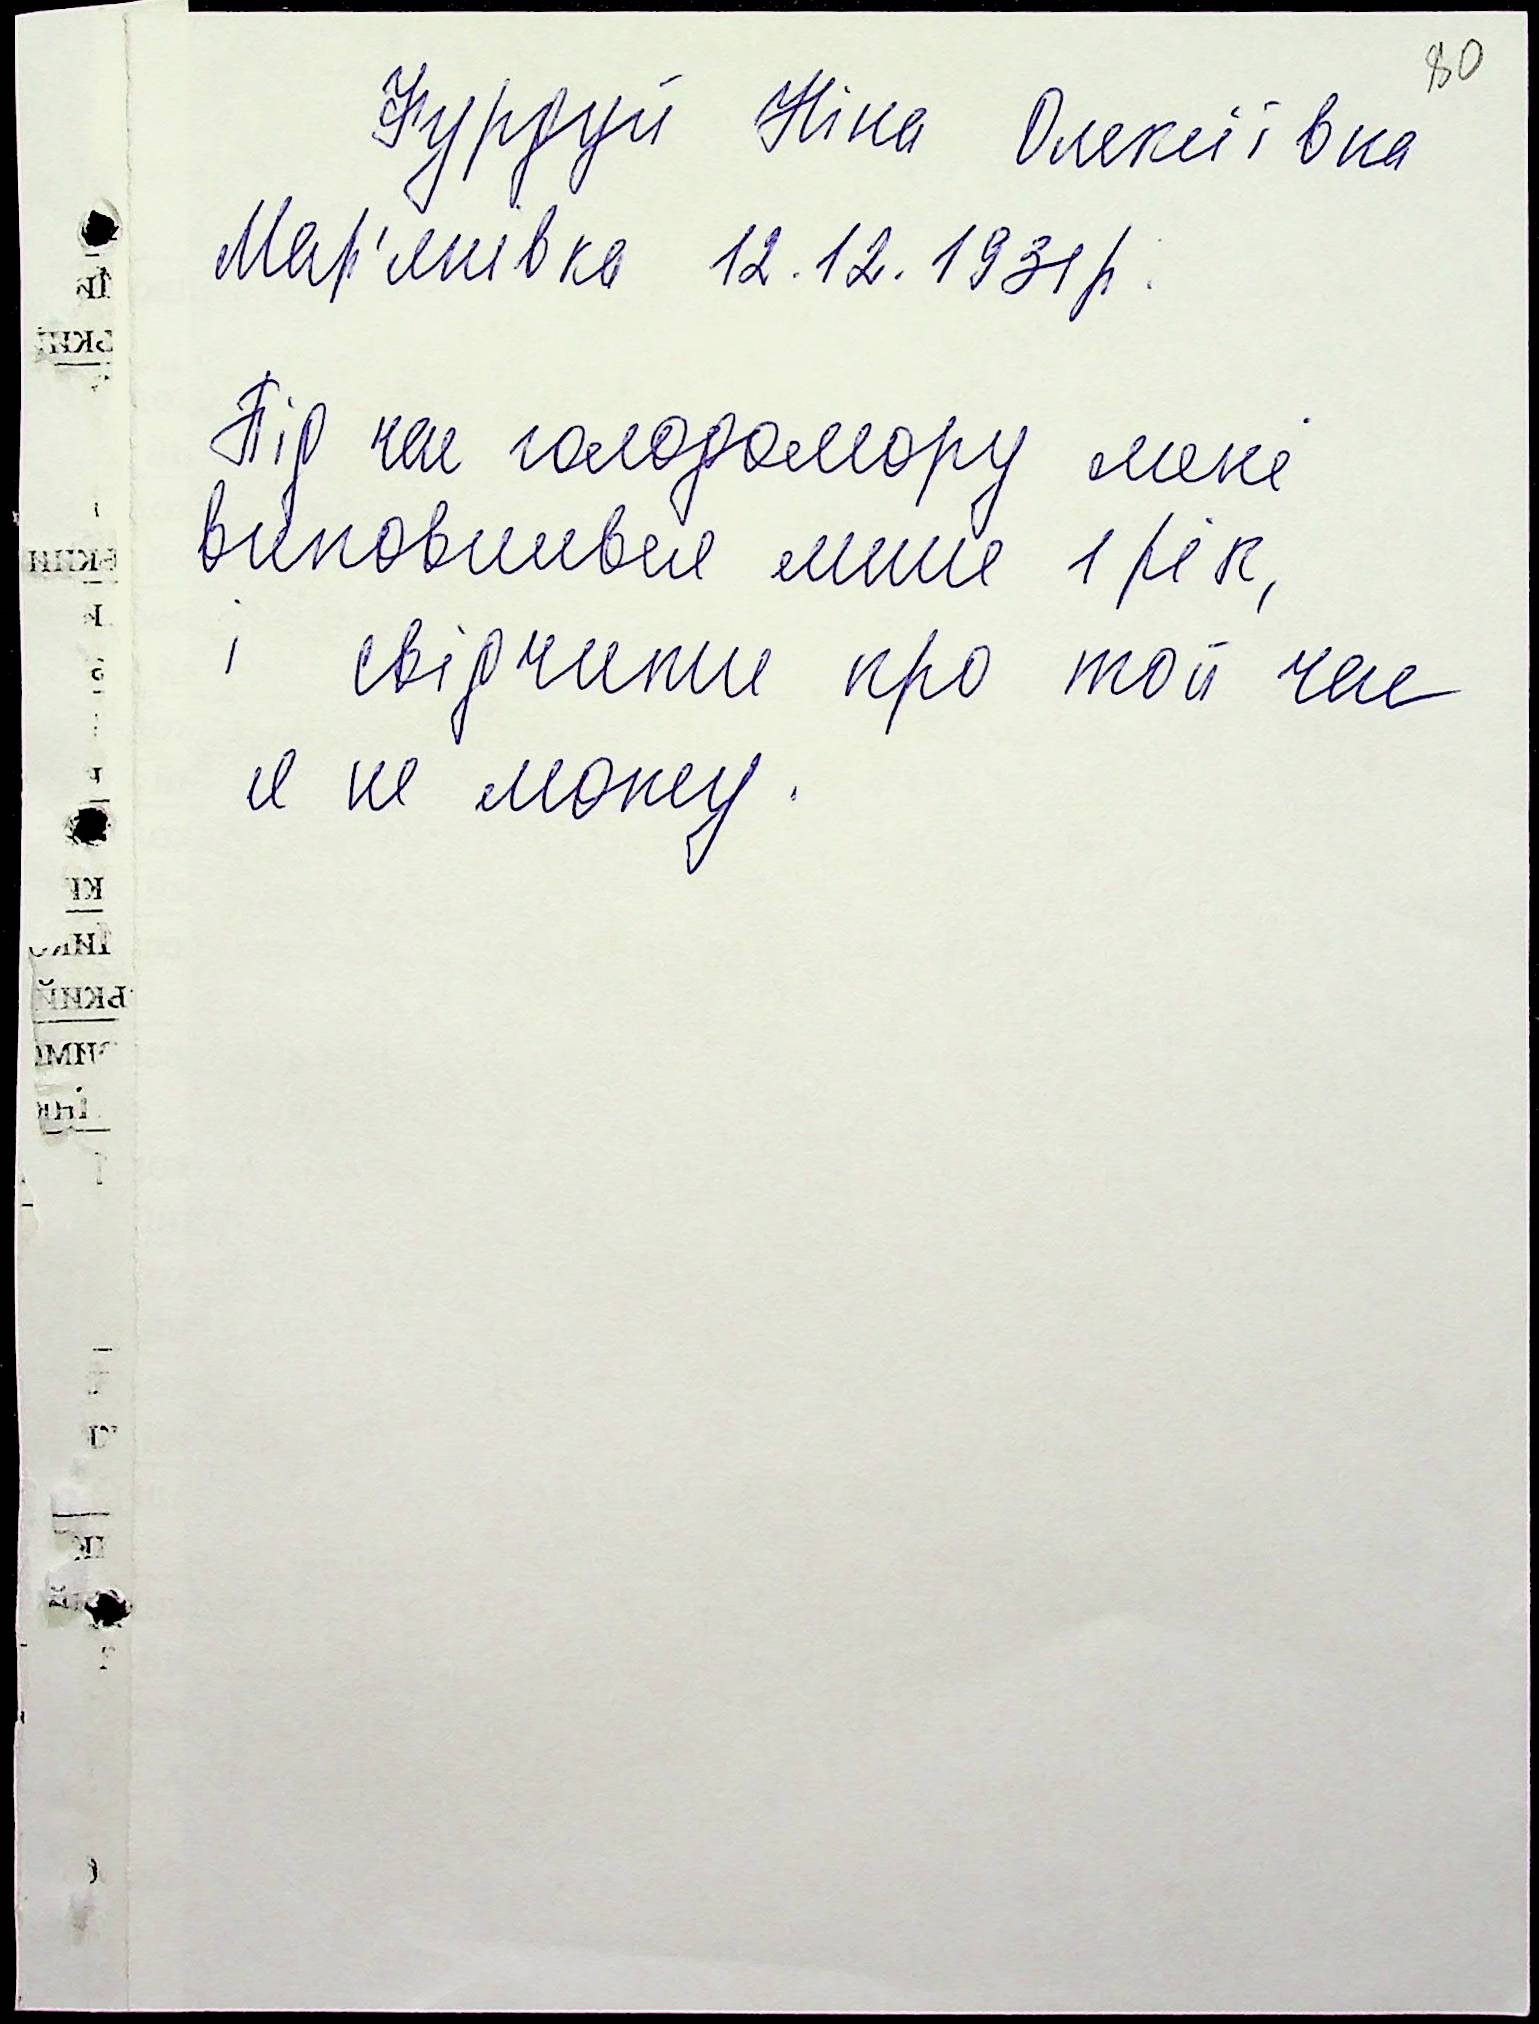 80
Курдуй Ніна Олексіївна
Мар'янівка 12.12.1931р.
Під час голодомору мені
виповнився лише 1 рік,
і свідчити про той час
я не можу.